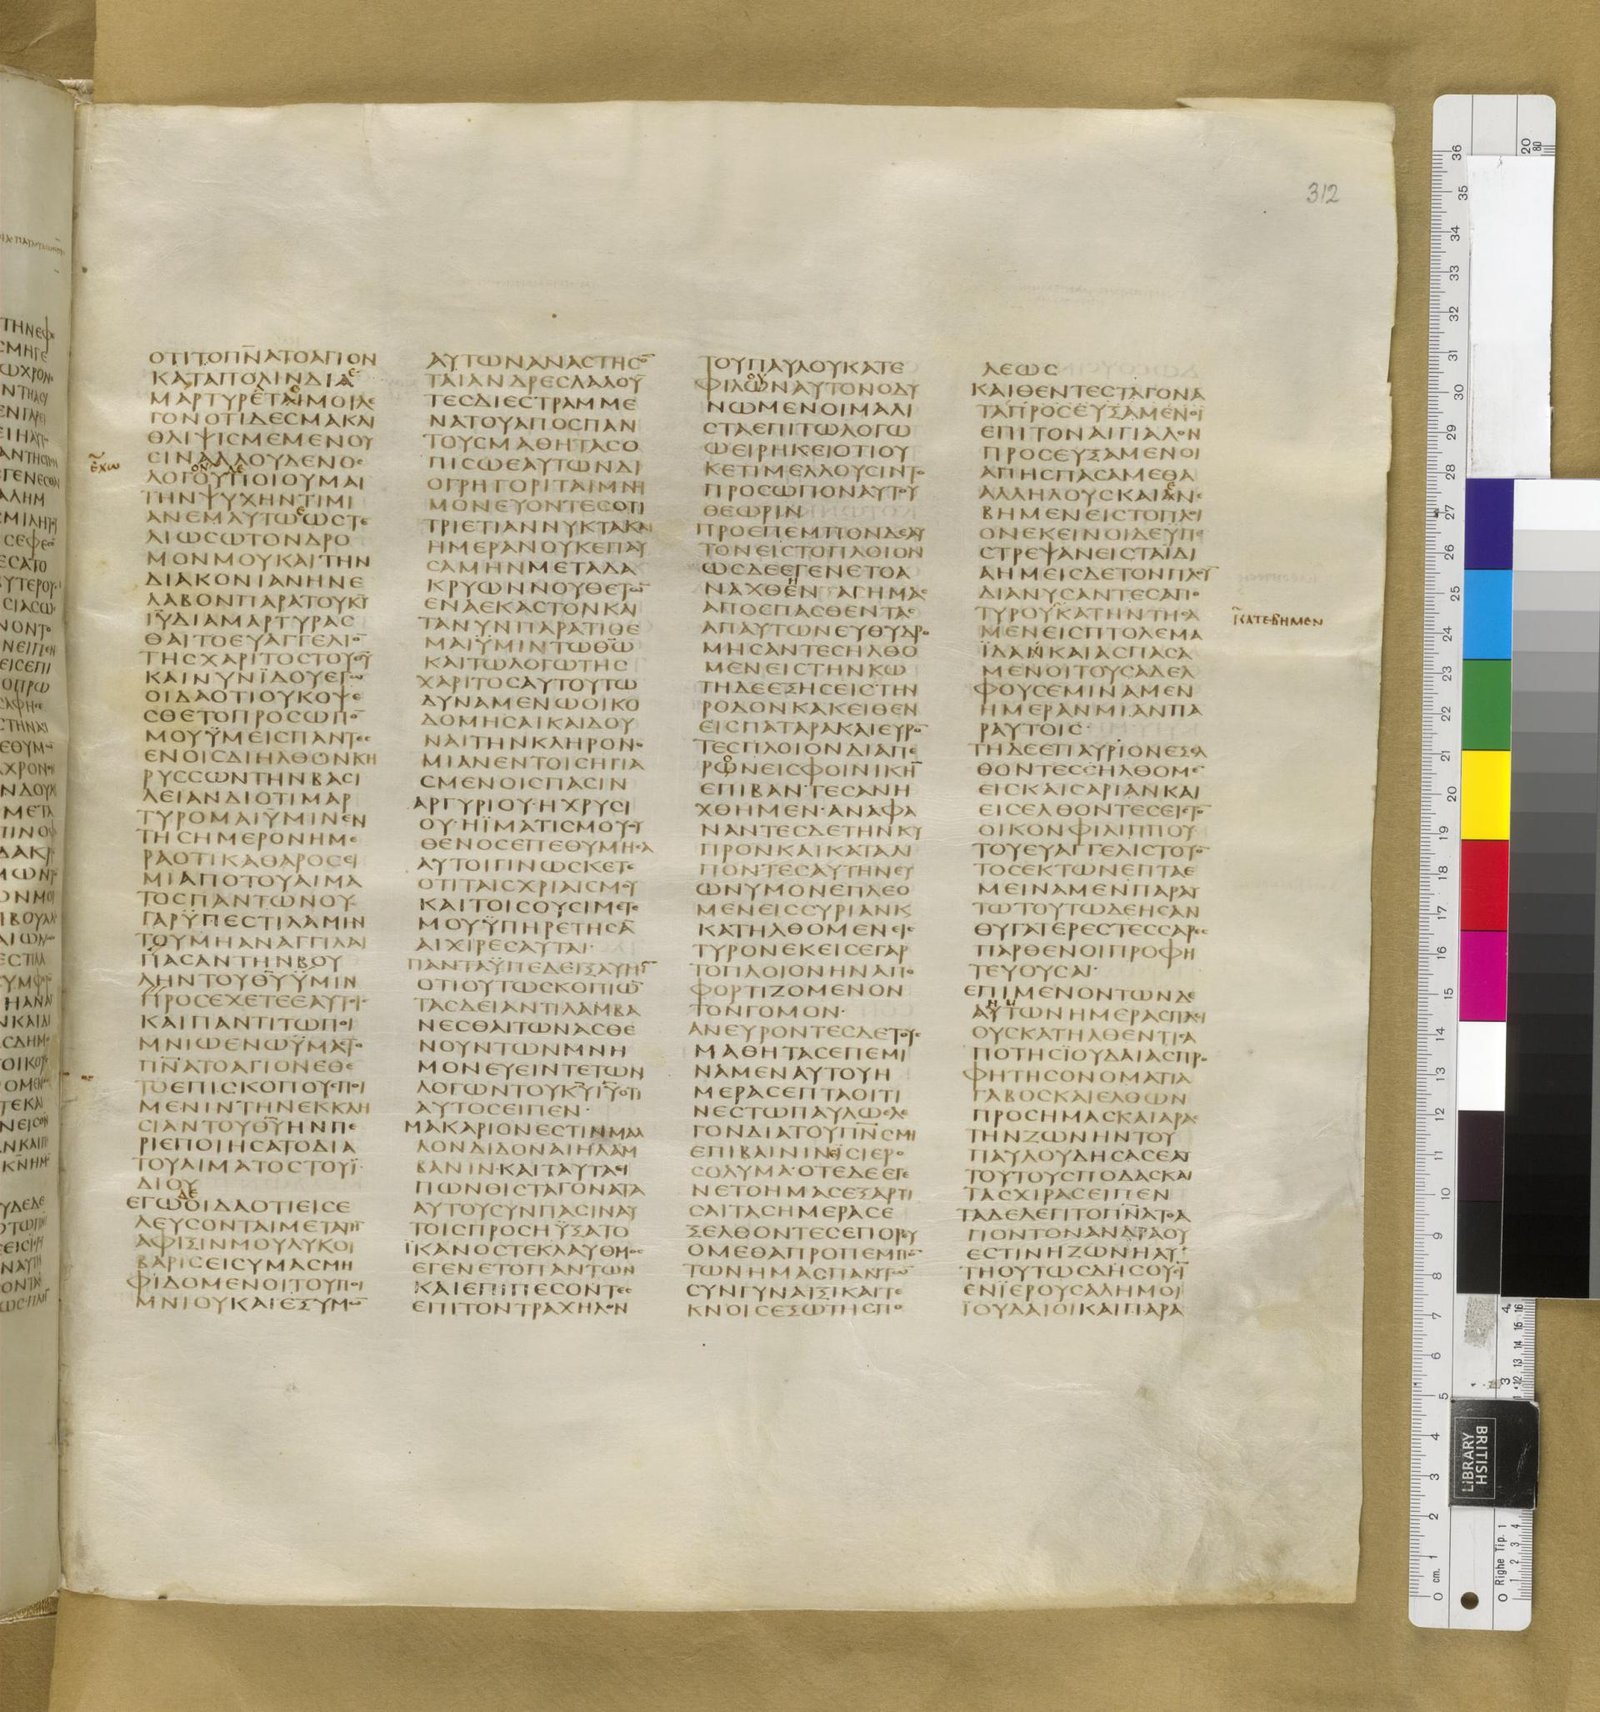 312
ΟΤΙΤΟΠΝΑΤΟΑΓΙΟΝ
ΚΑΤΑΠΟΛΙΝΔΙΑ
ΜΑΡΤΥΡΕΤΑΙΜΟΙΛΕ
ΓΟΝΟΤΙΔΕΣΜΑΚΑΙ
ΘΛΙΨΙΣΜΕΜΕΝΟΥ
ΣΙΝΑΛΛΟΥΔΕΝΟΣ
ΛΟΓΟΥΠΟΙΟΥΜΑΙ
ΤΗΝΨΥΧΗΝΤΙΜΙ
ΑΝΕΜΑΥΤΩΩΣΤΕ
ΛΙΩΣΩΤΟΝΔΡΟ
ΜΟΝΜΟΥΚΑΙΤΗΝ
ΔΙΑΚΟΝΙΑΝΗΝΕ
ΛΑΒΟΝΠΑΡΑΤΟΥΚΥ
ΙΥΔΙΑΜΑΡΤΥΡΑΣ
ΘΑΙΤΟΕΥΑΓΓΕΛΙΟ
ΤΗΣΧΑΡΙΤΟΣΤΟΥΘΥ
ΚΑΙΝΥΝΙΔΟΥΕΓΩ
ΟΙΔΑΟΤΙΟΥΚΟΨΕ
ΣΘΕΤΟΠΡΟΣΩΠΟ
ΜΟΥΫΜΕΙΣΠΑΝΤΕΣ
ΕΝΟΙΣΔΙΗΛΘΟΝΚΗ
ΡΥΣΣΩΝΤΗΝΒΑΣΙ
ΛΕΙΑΝΔΙΟΤΙΜΑΡ
ΤΥΡΟΜΑΙΥΜΙΝΕΝ
ΤΗΣΗΜΕΡΟΝΗΜΕ
ΡΑΟΤΙΚΑΘΑΡΟΣΕΙ
ΜΙΑΠΟΤΟΥΑΙΜΑ
ΤΟΣΠΑΝΤΩΝΟΥ
ΓΑΡΫΠΕΣΤΙΛΑΜΗΝ
ΤΟΥΜΗΑΝΑΓΓΙΛΑΙ
ΠΑΣΑΝΤΗΝΒΟΥ
ΛΗΝΤΟΥΘΥΫΜΙΝ
ΠΡΟΣΕΧΕΤΕΕΑΥΤΟΙΣ
ΚΑΙΠΑΝΤΙΤΩΠΟΙ
ΜΝΙΩΕΝΩΫΜΑΣΤΟ
ΠΝΑΤΟΑΓΙΟΝΕΘΕ
ΤΟΕΠΙΣΚΟΠΟΥΣΠΟΙ
ΜΕΝΙΝΤΗΝΕΚΚΛΗ
ΣΙΑΝΤΟΥΘΥΗΝΠΕ
ΡΙΕΠΟΙΗΣΑΤΟΔΙΑ
ΤΟΥΑΙΜΑΤΟΣΤΟΥΪ
ΔΙΟΥ
ΕΓΩΟΙΔΑΟΤΙΕΙΣΕ
ΛΕΥΣΟΝΤΑΙΜΕΤΑΤΗ
ΑΦΙΞΙΝΜΟΥΛΥΚΟΙ
ΒΑΡΙΣΕΙΣΥΜΑΣΜΗ
ΦΙΔΟΜΕΝΟΙΤΟΥΠΟΙ
ΜΝΙΟΥΚΑΙΕΞΥΜΩ
ΕΧΩ
ΑΥΤΩΝΑΝΑΣΤΗΣΟ
ΤΑΙΑΝΔΡΕΣΛΑΛΟΥ
ΤΕΣΔΙΕΣΤΡΑΜΜΕ
ΝΑΤΟΥΑΠΟΣΠΑΝ
ΤΟΥΣΜΑΘΗΤΑΣΟ
ΠΙΣΩΕΑΥΤΩΝΔΙ
ΟΓΡΗΓΟΡΙΤΑΙΜΝΗ
ΜΟΝΕΥΟΝΤΕΣΟΤΙ
ΤΡΙΕΤΙΑΝΝΥΚΤΑΚΑΙ
ΗΜΕΡΑΝΟΥΚΕΠΑΥ
ΣΑΜΗΝΜΕΤΑΔΑ
ΚΡΥΩΝΝΟΥΘΕΤΩ
ΕΝΑΕΚΑΣΤΟΝΚΑΙ
ΤΑΝΥΝΠΑΡΑΤΙΘΕ
ΜΑΙΫΜΙΝΤΩΘΩ
ΚΑΙΤΩΛΟΓΩΤΗΣ
ΧΑΡΙΤΟΣΑΥΤΟΥΤΩ
ΔΥΝΑΜΕΝΩΟΙΚΟ
ΔΟΜΗΣΑΙΚΑΙΔΟΥ
ΝΑΙΤΗΝΚΛΗΡΟΝΟ
ΜΙΑΝΕΝΤΟΙΣΗΓΙΑ
ΣΜΕΝΟΙΣΠΑΣΙΝ
ΑΡΓΥΡΙΟΥΗΧΡΥΣΙ
ΟΥΗΪΜΑΤΙΣΜΟΥΟΥ
ΘΕΝΟΣΕΠΕΘΥΜΗΣΑ
ΑΥΤΟΙΓΙΝΩΣΚΕΤΕ
ΟΤΙΤΑΙΣΧΡΙΑΙΣΜΟΥ
ΚΑΙΤΟΙΣΟΥΣΙΜΕΤΕ
ΜΟΥΫΠΗΡΕΤΗΣΑ
ΑΙΧΙΡΕΣΑΥΤΑΙ
ΠΑΝΤΑΫΠΕΔΕΙΞΑΥΜΙ
ΟΤΙΟΥΤΩΣΚΟΠΙΩ
ΤΑΣΔΕΙΑΝΤΙΛΑΜΒΑ
ΝΕΣΘΑΙΤΩΝΑΣΘΕ
ΝΟΥΝΤΩΝΜΝΗ
ΜΟΝΕΥΕΙΝΤΕΤΩΝ
ΛΟΓΩΝΤΟΥΚΥΙΥΟΤΙ
ΑΥΤΟΣΕΙΠΕΝ
ΜΑΚΑΡΙΟΝΕΣΤΙΝΜΑΛ
ΛΟΝΔΙΔΟΝΑΙΗΛΑΜ
ΒΑΝΙΝΚΑΙΤΑΥΤΑΕΙ
ΠΩΝΘΙΣΤΑΓΟΝΑΤΑ
ΑΥΤΟΥΣΥΝΠΑΣΙΝΑΥ
ΤΟΙΣΠΡΟΣΗΫΞΑΤΟ
ΪΚΑΝΟΣΤΕΚΛΑΥΘΜΟΣ
ΕΓΕΝΕΤΟΠΑΝΤΩΝ
ΚΑΙΕΠΙΠΕΣΟΝΤΕΣ
ΕΠΙΤΟΝΤΡΑΧΗΛΟΝ
ΤΟΥΠΑΥΛΟΥΚΑΤΕ
ΦΙΛΩΝΑΥΤΟΝΟΔΥ
ΝΩΜΕΝΟΙΜΑΛΙ
ΣΤΑΕΠΙΤΩΛΟΓΩ
ΩΕΙΡΗΚΕΙΟΤΙΟΥ
ΚΕΤΙΜΕΛΛΟΥΣΙΝΤΟ
ΠΡΟΣΩΠΟΝΑΥΤΟΥ
ΘΕΩΡΙΝ
ΠΡΟΕΠΕΜΠΟΝΔΕΑΥ
ΤΟΝΕΙΣΤΟΠΛΟΙΟΝ
ΩΣΔΕΕΓΕΝΕΤΟΑ
ΝΑΧΘΕΝΤΑΣΗΜΑΣ
ΑΠΟΣΠΑΣΘΕΝΤΑΣ
ΑΠΑΥΤΩΝΕΥΘΥΔΡΟ
ΜΗΣΑΝΤΕΣΗΛΘΟ
ΜΕΝΕΙΣΤΗΝΚΩ
ΤΗΔΕΕΞΗΣΕΙΣΤΗΝ
ΡΟΔΟΝΚΑΚΕΙΘΕΝ
ΕΙΣΠΑΤΑΡΑΚΑΙΕΥΡΟ
ΤΕΣΠΛΟΙΟΝΔΙΑΠΕ
ΡΩΝΕΙΣΦΟΙΝΙΚΗ
ΕΠΙΒΑΝΤΕΣΑΝΗ
ΧΘΗΜΕΝΑΝΑΦΑ
ΝΑΝΤΕΣΔΕΤΗΝΚΥ
ΠΡΟΝΚΑΙΚΑΤΑΛΙ
ΠΟΝΤΕΣΑΥΤΗΝΕΥ
ΩΝΥΜΟΝΕΠΛΕΟ
ΜΕΝΕΙΣΣΥΡΙΑΝΚ
ΚΑΤΗΛΘΟΜΕΝΕΙΣ
ΤΥΡΟΝΕΚΕΙΣΕΓΑΡ
ΤΟΠΛΟΙΟΝΗΝΑΠΟ
ΦΟΡΤΙΖΟΜΕΝΟΝ
ΤΟΝΓΟΜΟΝ
ΑΝΕΥΡΟΝΤΕΣΔΕΤΟΥΣ
ΜΑΘΗΤΑΣΕΠΕΜΙ
ΝΑΜΕΝΑΥΤΟΥΗ
ΜΕΡΑΣΕΠΤΑΟΙΤΙ
ΝΕΣΤΩΠΑΥΛΩΕΛΕ
ΓΟΝΔΙΑΤΟΥΠΝΣΜΙ
ΕΠΙΒΑΙΝΙΝΕΙΣΙΕΡΟ
ΣΟΛΥΜΑΟΤΕΔΕΕΓΕ
ΝΕΤΟΗΜΑΣΕΞΑΡΤΙ
ΣΑΙΤΑΣΗΜΕΡΑΣΕ
ΞΕΛΘΟΝΤΕΣΕΠΟΡΕΥ
ΟΜΕΘΑΠΡΟΠΕΜΠΟ
ΤΩΝΗΜΑΣΠΑΝΤΩ
ΣΥΝΓΥΝΑΙΞΙΚΑΙΤΕ
ΚΝΟΙΣΕΞΩΤΗΣΠΟ
ΛΕΩΣ
ΚΑΙΘΕΝΤΕΣΤΑΓΟΝΑ
ΤΑΠΡΟΣΕΥΞΑΜΕΝΟΙ
ΕΠΙΤΟΝΑΙΓΙΑΛΟΝ
ΠΡΟΣΕΥΞΑΜΕΝΟΙ
ΑΠΗΣΠΑΣΑΜΕΘΑ
ΑΛΛΗΛΟΥΣΚΑΙΑΝΕ
ΒΗΜΕΝΕΙΣΤΟΠΛΟΙ
ΟΝΕΚΕΙΝΟΙΔΕΥΠΕ
ΣΤΡΕΨΑΝΕΙΣΤΑΙΔΙ
ΑΗΜΕΙΣΔΕΤΟΝΠΛΟΥ
ΔΙΑΝΥΣΑΝΤΕΣΑΠΟ
ΤΥΡΟΥΚΑΤΗΝΤΗΣΑ
ΜΕΝΕΙΣΠΤΟΛΕΜΑ
ΪΔΑΝΚΑΙΑΣΠΑΣΑ
ΜΕΝΟΙΤΟΥΣΑΔΕΛ
ΦΟΥΣΕΜΙΝΑΜΕΝ
ΗΜΕΡΑΝΜΙΑΝΠΑ
ΡΑΥΤΟΙΣ
ΤΗΔΕΕΠΑΥΡΙΟΝΕΞΕΛ
ΘΟΝΤΕΣΗΛΘΟΜΕ
ΕΙΣΚΑΙΣΑΡΙΑΝΚΑΙ
ΕΙΣΕΛΘΟΝΤΕΣΕΙΣΤΟ
ΟΙΚΟΝΦΙΛΙΠΠΟΥ
ΤΟΥΕΥΑΓΓΕΛΙΣΤΟΥΟ
ΤΟΣΕΚΤΩΝΕΠΤΑΕ
ΜΕΙΝΑΜΕΝΠΑΡΑΥ
ΤΩΤΟΥΤΩΔΕΗΣΑΝ
ΘΥΓΑΤΕΡΕΣΤΕΣΣΑΡΕΣ
ΠΑΡΘΕΝΟΙΠΡΟΦΗ
ΤΕΥΟΥΣΑΙ
ΕΠΙΜΕΝΟΝΤΩΝΔΕ
ΑΥΤΩΝΗΜΕΡΑΣΠΛΕΙ
ΟΥΣΚΑΤΗΛΘΕΝΤΙΣΑ
ΠΟΤΗΣΪΟΥΔΑΙΑΣΠΡΟ
ΦΗΤΗΣΟΝΟΜΑΤΙΑ
ΓΑΒΟΣΚΑΙΕΛΘΩΝ
ΠΡΟΣΗΜΑΣΚΑΙΑΡΑΣ
ΤΗΝΖΩΝΗΝΤΟΥ
ΠΑΥΛΟΥΔΗΣΑΣΕΑΥ
ΤΟΥΤΟΥΣΠΟΔΑΣΚΑΙ
ΤΑΣΧΙΡΑΣΕΙΠΕΝ
ΤΑΔΕΛΕΓΙΤΟΠΝΑΤΟΑ
ΓΙΟΝΤΟΝΑΝΔΡΑΟΥ
ΕΣΤΙΝΗΖΩΝΗΑΥ
ΤΗΟΥΤΩΣΔΗΣΟΥΣΙ
ΕΝΪΕΡΟΥΣΑΛΗΜΟΙ
ΪΟΥΔΑΙΟΙΚΑΙΠΑΡΑ
ΚΑΤΕΒΗΜΕΝ
BRITISH
LIBRARY